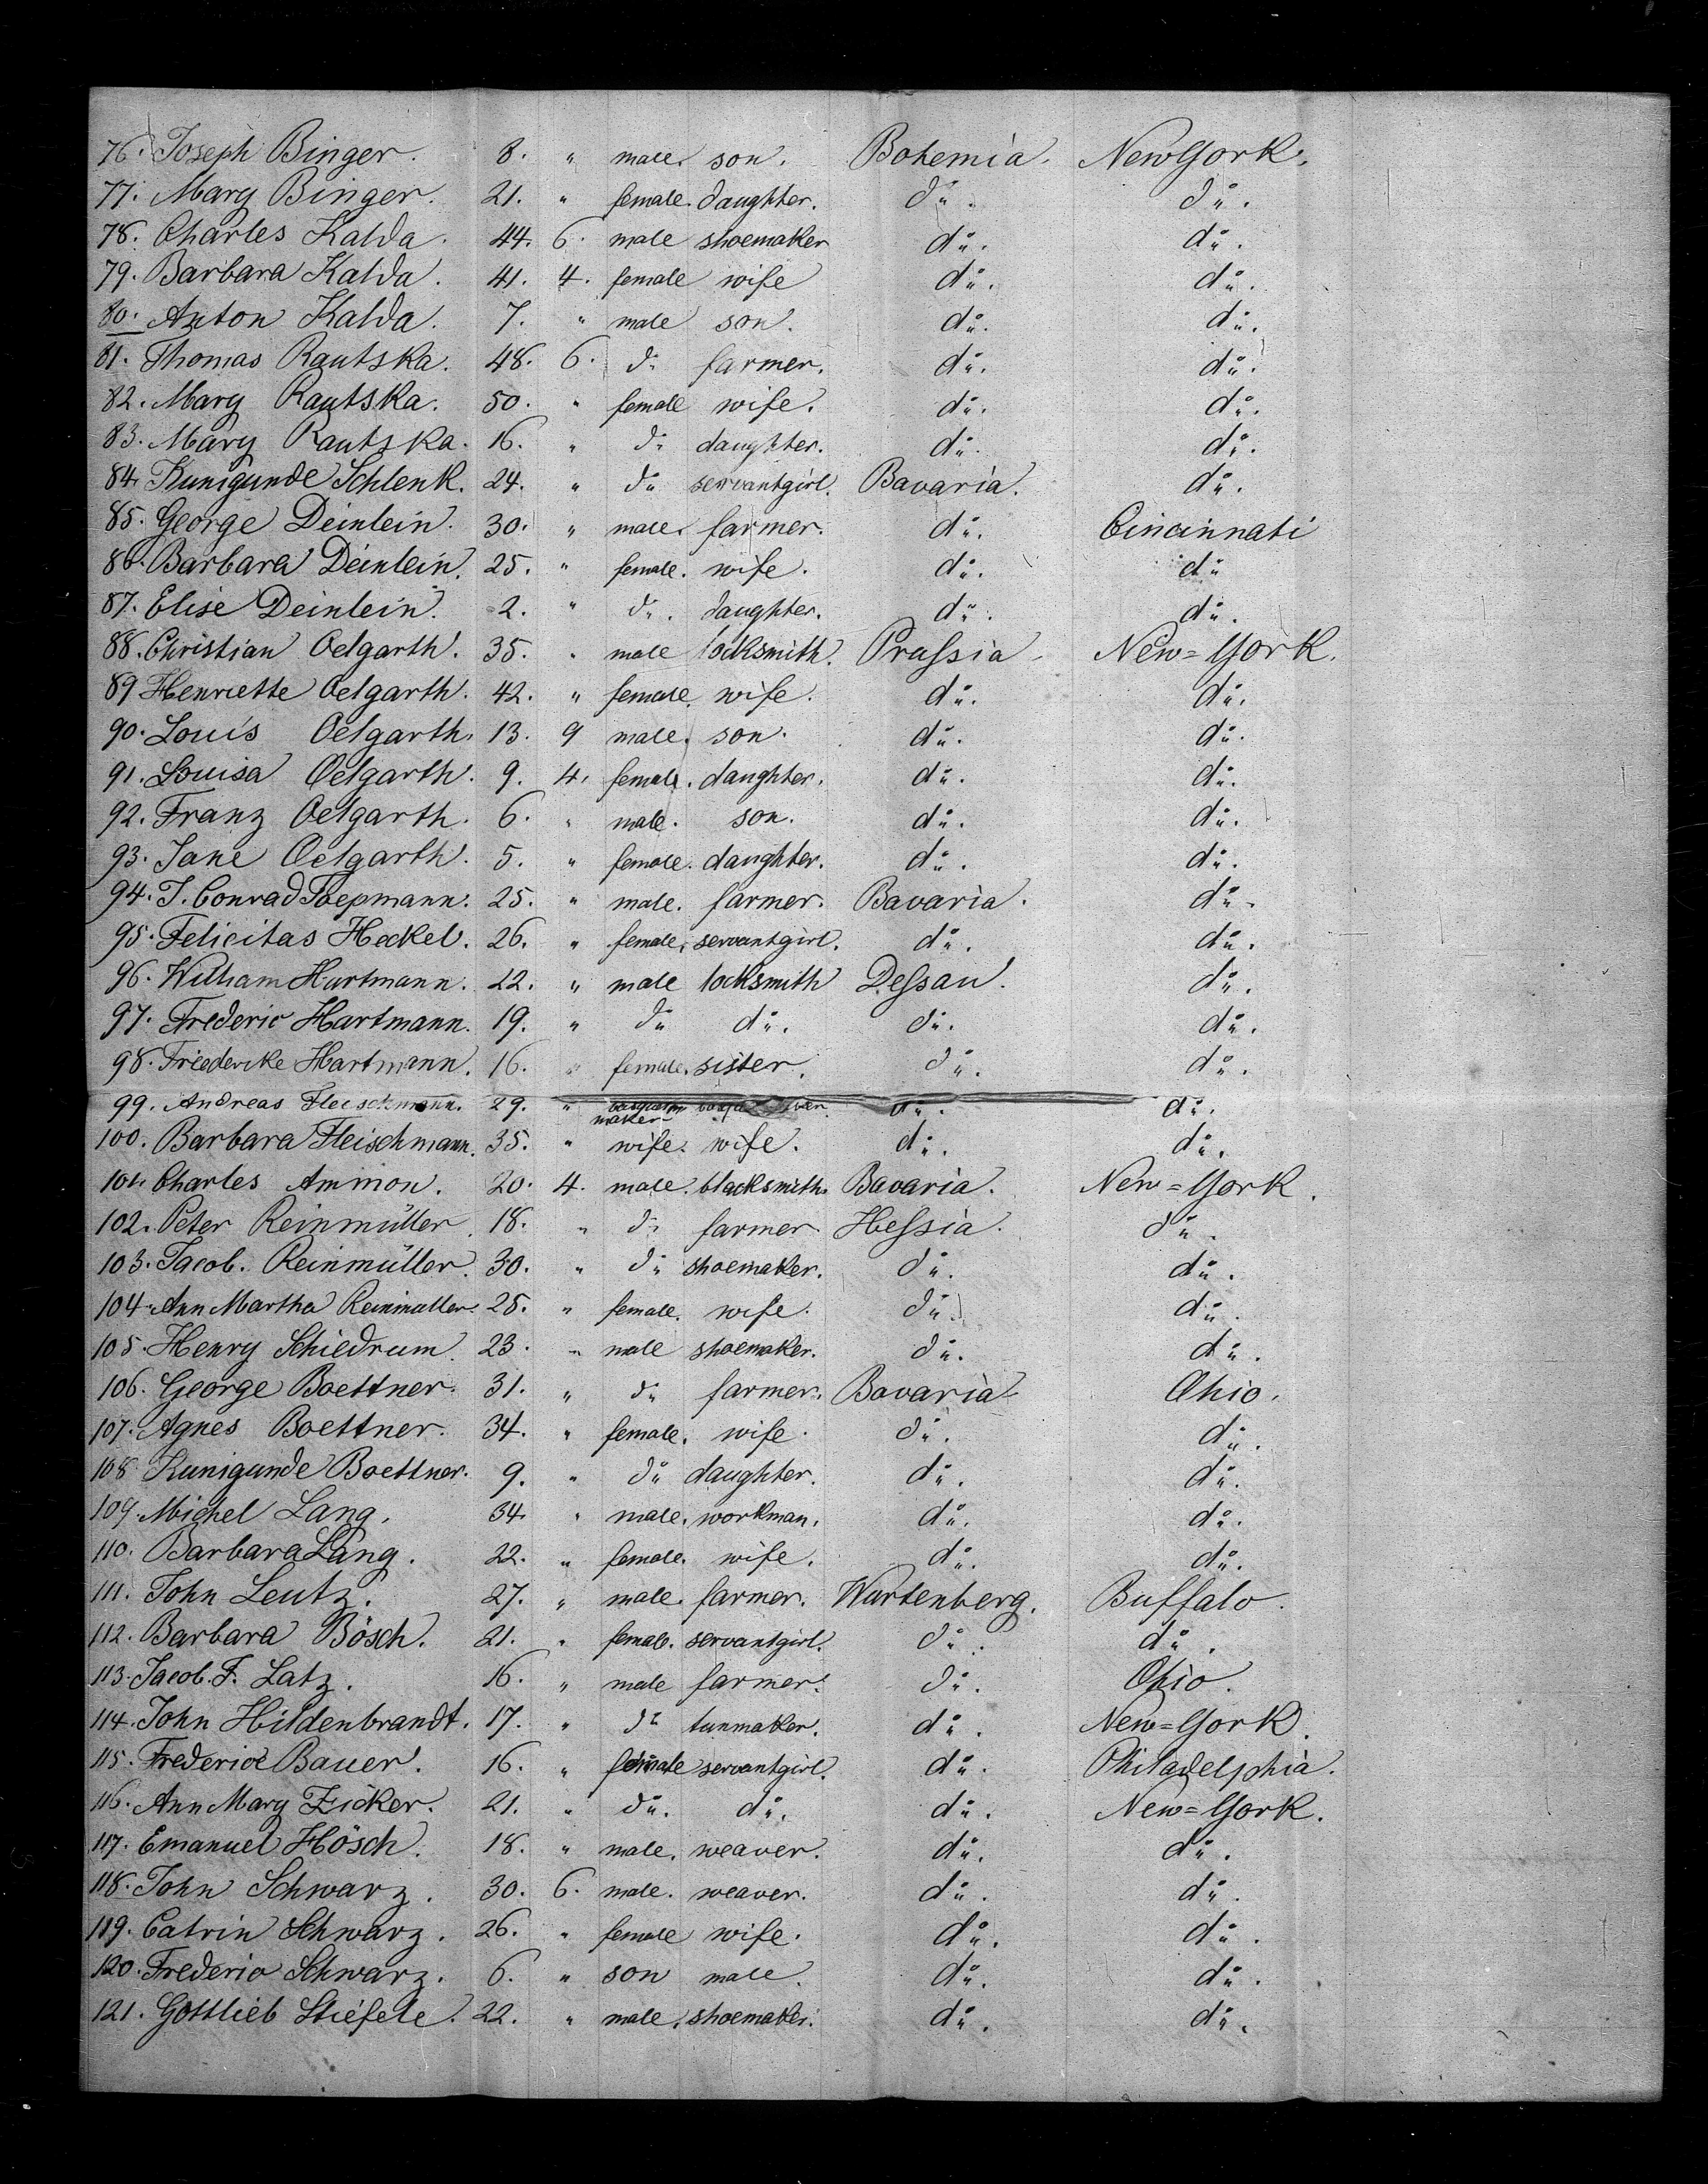 76. Joseph Binger. 8. " male. son. Bohemia. New York.
77. Mary Binger. 21. " female. daughter. do. do.
78. Charles Kalda. 44. 6. male shoemaker do. do.
79. Barbara Kalda. 41. 4. female wife do. do.
80. Anton Kalda. 7. " male son. do. do.
81. Thomas Rautska. 48. 6. do farmer. do. do.
82. Mary Rautska. 50. " female wife. do. do.
83. Mary Rautska. 16. " do daughter. do. do.
84. Kunigunde Schlenk. 24. " do servantgirl. Bavaria. do.
85. George Deinlein. 30. " male. farmer. do. Cincinnati
86. Barbara Deinlein. 25. " female. wife. do. do
87. Elise Deinlein. 2. " do. daughter. do. do.
88. Christian Oelgarth. 35. " male locksmith. Prussia New=York.
89 Henriette Oelgarth. 42. " female. wife. do. do.
90. Louis Oelgarth. 13. 9 male. son. do. do.
91. Louisa Oelgarth. 9. 4. female. daughter. do. do.
92. Franz Oelgarth. 6. " male. son. do. do.
93. Jane Oelgarth. 5. " female. daughter. do. do.
94. J. Conrad Toepmann. 25. " male. farmer. Bavaria. do.
95. Felicitas Heckel. 26. " female. servantgirl. do. do.
96. William Hartmann. 22. " male locksmith Dessau. do.
97. Frederic Hartmann. 19. " do do. do. do.
98. Friedericke Hartmann. 16. " female. sister. do. do.
99. Andreas Fleischmann. 29. " maker do. do.
100. Barbara Fleischmann. 35. " wife. wife. do. do.
101. Charles Ammon. 20. 4. male. blacksmith. Bavaria. New=York.
102. Peter Reinmüller. 18. " do farmer. Hessia. do.
103. Jacob. Reinmüller. 30. " do shoemaker. do. do.
104. Ann Martha Reinmüller. 28. " female. wife. do. do.
105. Henry Schiedrum. 23. " male shoemaker. do. do.
106. George Boettner. 31. " do farmer. Bavaria Ohio.
107. Agnes Boettner. 34. " female. wife. do. do.
108 Kunigunde Boettner. 9. " do daughter. do. do.
109. Michel Lang. 34. " male. workman. do. do.
110. Barbara Lang. 22. " female. wife. do. do.
111. John Leutz. 27. " male. farmer. Wurtenberg. Buffalo.
112. Barbara Bösch. 21. " female. servantgirl. do. do.
113. Jacob. F. Latz. 16. " male farmer. do. Ohio.
114. John Hildenbrandt. 17. " do tunmaker. do. New=York.
115. Frederice Bauer. 16. " female servantgirl. do. Philadelphia.
116. Ann Mary Zicker. 21. " do. do. do. New=York.
117. Emanuel Hösch. 18. " male. weaver. do. do.
118. John Schwarz. 30. 6. male. weaver. do. do.
119. Catrin Schwarz. 26. " female wife. do. do.
120. Frederic Schwarz. 6. " son male. do. do.
121. Gottlieb Stiefele. 22. " male. shoemaker. do. do.